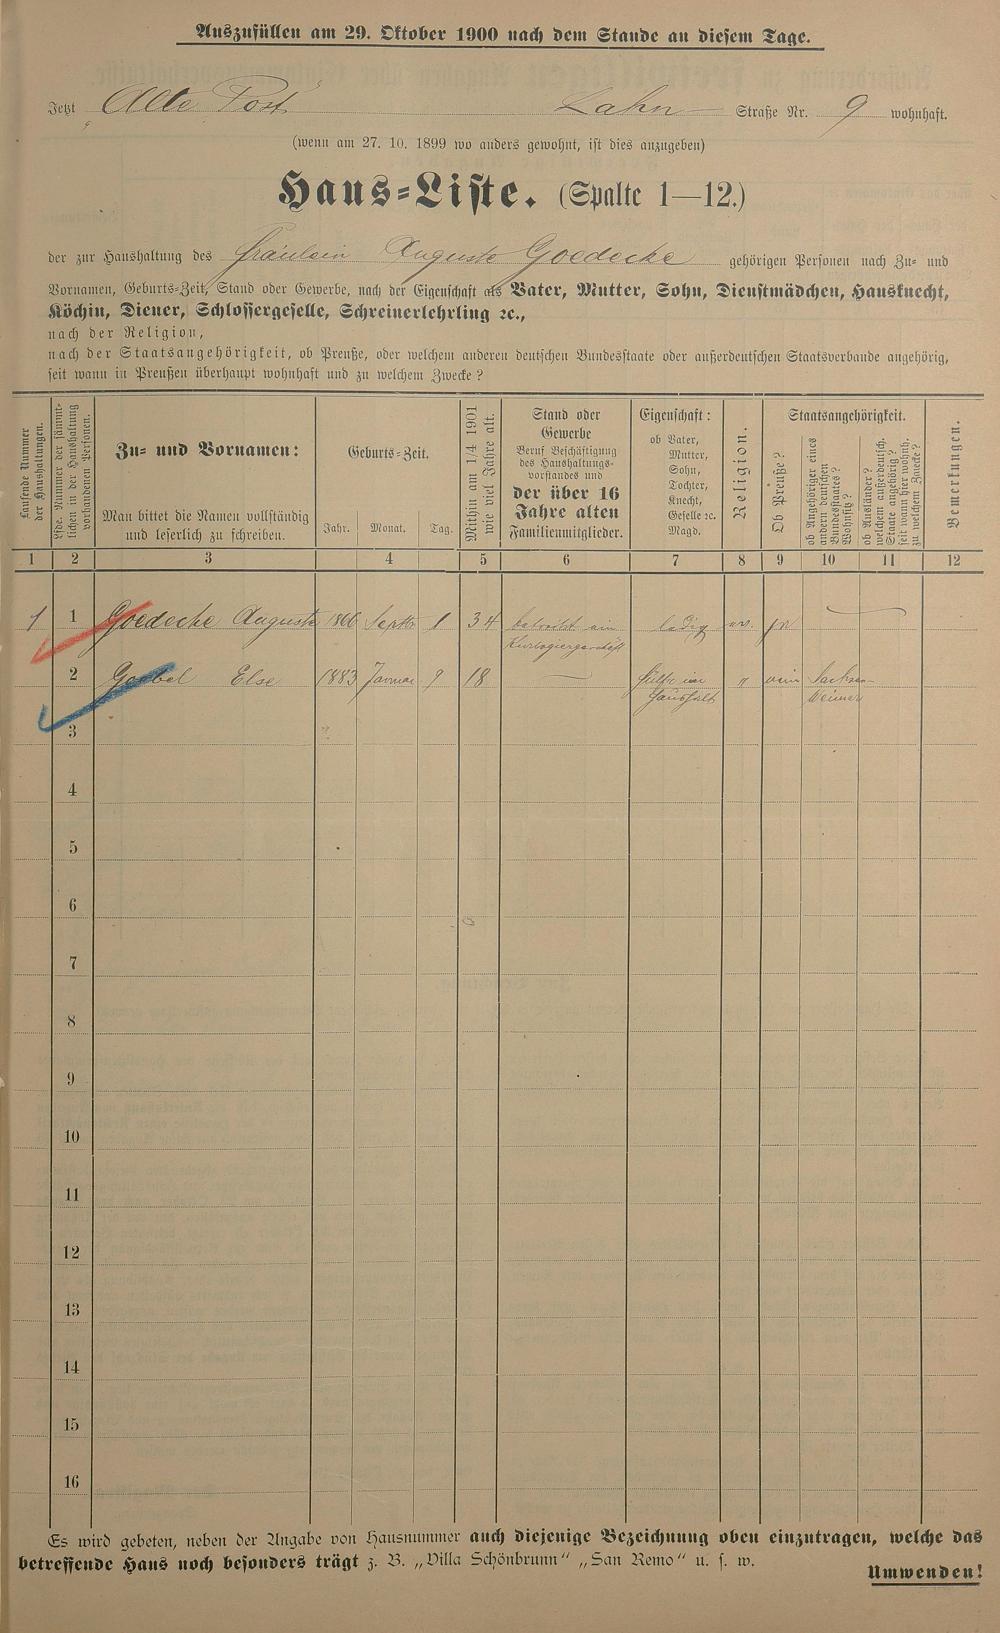 Auszufüllen am 29. Oktober 1900 nach dem Stande an diesem Tage.
Jetzt Alte Post Lahn- Straße Nr. 9 wohnhaft.
(wenn am 27. 10. 1899 wo anders gewohnt, ist dies anzugeben)
Haus-Liste. (Spalte 1—12.)
der zur Haushaltung des Fräulein Auguste Goedecke gehörigen Personen nach Zu- und
Vornamen, Geburts-Zeit, Stand oder Gewerbe, nach der Eigenschaft als Vater, Mutter, Sohn, Dienstmädchen, Hausknecht,
Köchin, Diener, Schlossergeselle, Schreinerlehrling ꝛc.,
nach der Religion,
nach der Staatsangehörigkeit, ob Preuße, oder welchem anderen deutschen Bundesstaate oder außerdeutschen Staatsverbande angehörig,
seit wann in Preußen überhaupt wohnhaft und zu welchem Zwecke?
Laufende Nummer
der Haushaltungen.
Lfde. Nummer der sämmt-
lichen in der Haushaltung
vorhandenen Personen.
Zu- und Vornamen:
Man bittet die Namen vollständig
und leserlich zu schreiben.
Geburts-Zeit.
Jahr. Monat. Tag.
Mithin am 1/4 1901
wie viel Jahre alt.
Stand oder
Gewerbe
Beruf Beschäftigung
des Haushaltungs-
vorstandes und
der über 16
Jahre alten
Familienmitglieder.
Eigenschaft:
ob Vater,
Mutter,
Sohn,
Tochter,
Knecht,
Geselle ꝛc.
Magd.
Religion.
Staatsangehörigkeit.
Ob Preuße?
ob Angehöriger eines
andern deutschen
Bundesstaates?
Wohnsitz?
ob Ausländer?
welchem außerdeutsch.
Staate angehörig?
seit wann hier wohnh.
zu welchem Zwecke?
Bemerkungen.
1 2 3 4 5 6 7 8 9 10 11 12
1 1 Goedecke Auguste 1866 Septbr 1 34 betreibt ein ledig ev. ja
Kurlogiergeschäft
2 Goebel Else 1883 Januar 9 18 — Hülfe im " nein Sachsen-
Haushalt Weimar
3
4
5
6
7
8
9
10
11
12
13
14
15
16
Es wird gebeten, neben der Angabe von Hausnummer auch diejenige Bezeichnung oben einzutragen, welche das
betreffende Haus noch besonders trägt z. B. „Villa Schönbrunn" „San Remo" u. s. w.
Umwenden!